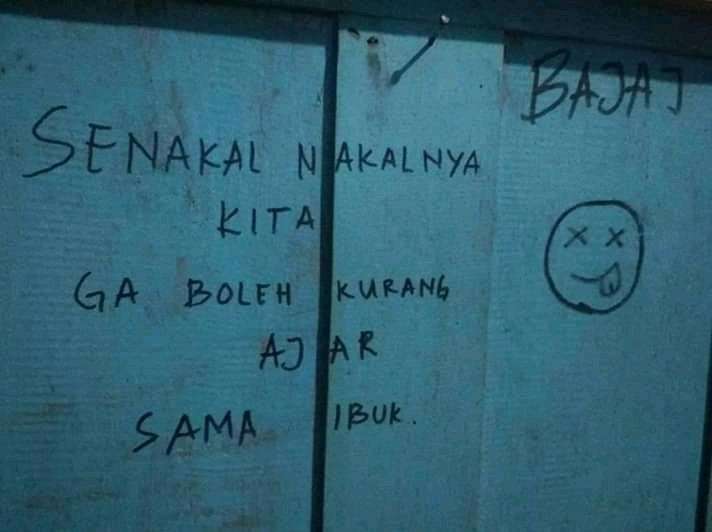 SENAKAL NAKALNYA
KITA
GA BOLEH KURANG
AJAR
SAMA IBUK.
BAJAJ